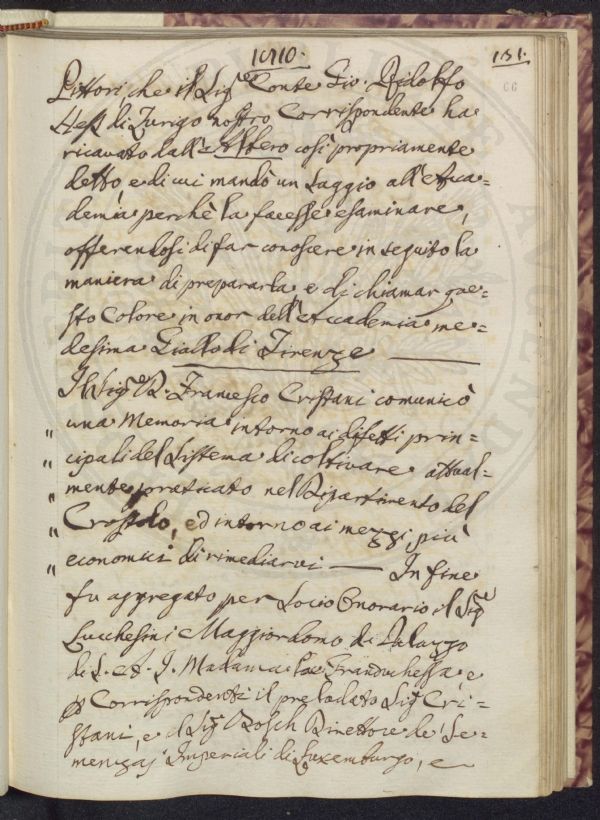 1810.
131.
66
Pittori, che il Sig.re Conte Gio. Ridolfo
Hess di Zurigo nostro Corrispondente ha
ricavato dall' Albero così propriamente
detto, e di cui mandò un Saggio all' Acca=
demia perchè la facesse esaminare,
offerendosi di far conoscere in seguito la
maniera di prepararla e di chiamar que=
sto Colore in onor dell' Accademia me=
desima Giallo di Firenze
Il Sig.re R. Francesco Cristani comunicò
una Memoria intorno ai difetti prin=
" cipali del Sistema di coltivare attual=
" mente praticato nel Dipartimento del
" Crostolo, ed intorno ai mezzi più
" economici di rimediarvi — In fine
fu aggregato per Socio Onorario il Sig.re
Lucchesini Maggiordomo di Palazzo
di S. A. I. Madama la Granduchessa, e
Corrispondenti il prelodato Sig.r Cri=
stani, e il Sig.r Rosch Direttore de' Se=
menzaj Imperiali di Luxemburgo, e